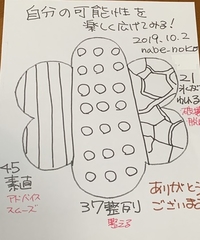 自分の可能性を
楽しく広げてみる!
2019.10.2
nabe-noko
21
われる
45
素直
アドバイス
スムーズ
37 整列
整える
ありがとう
ございま